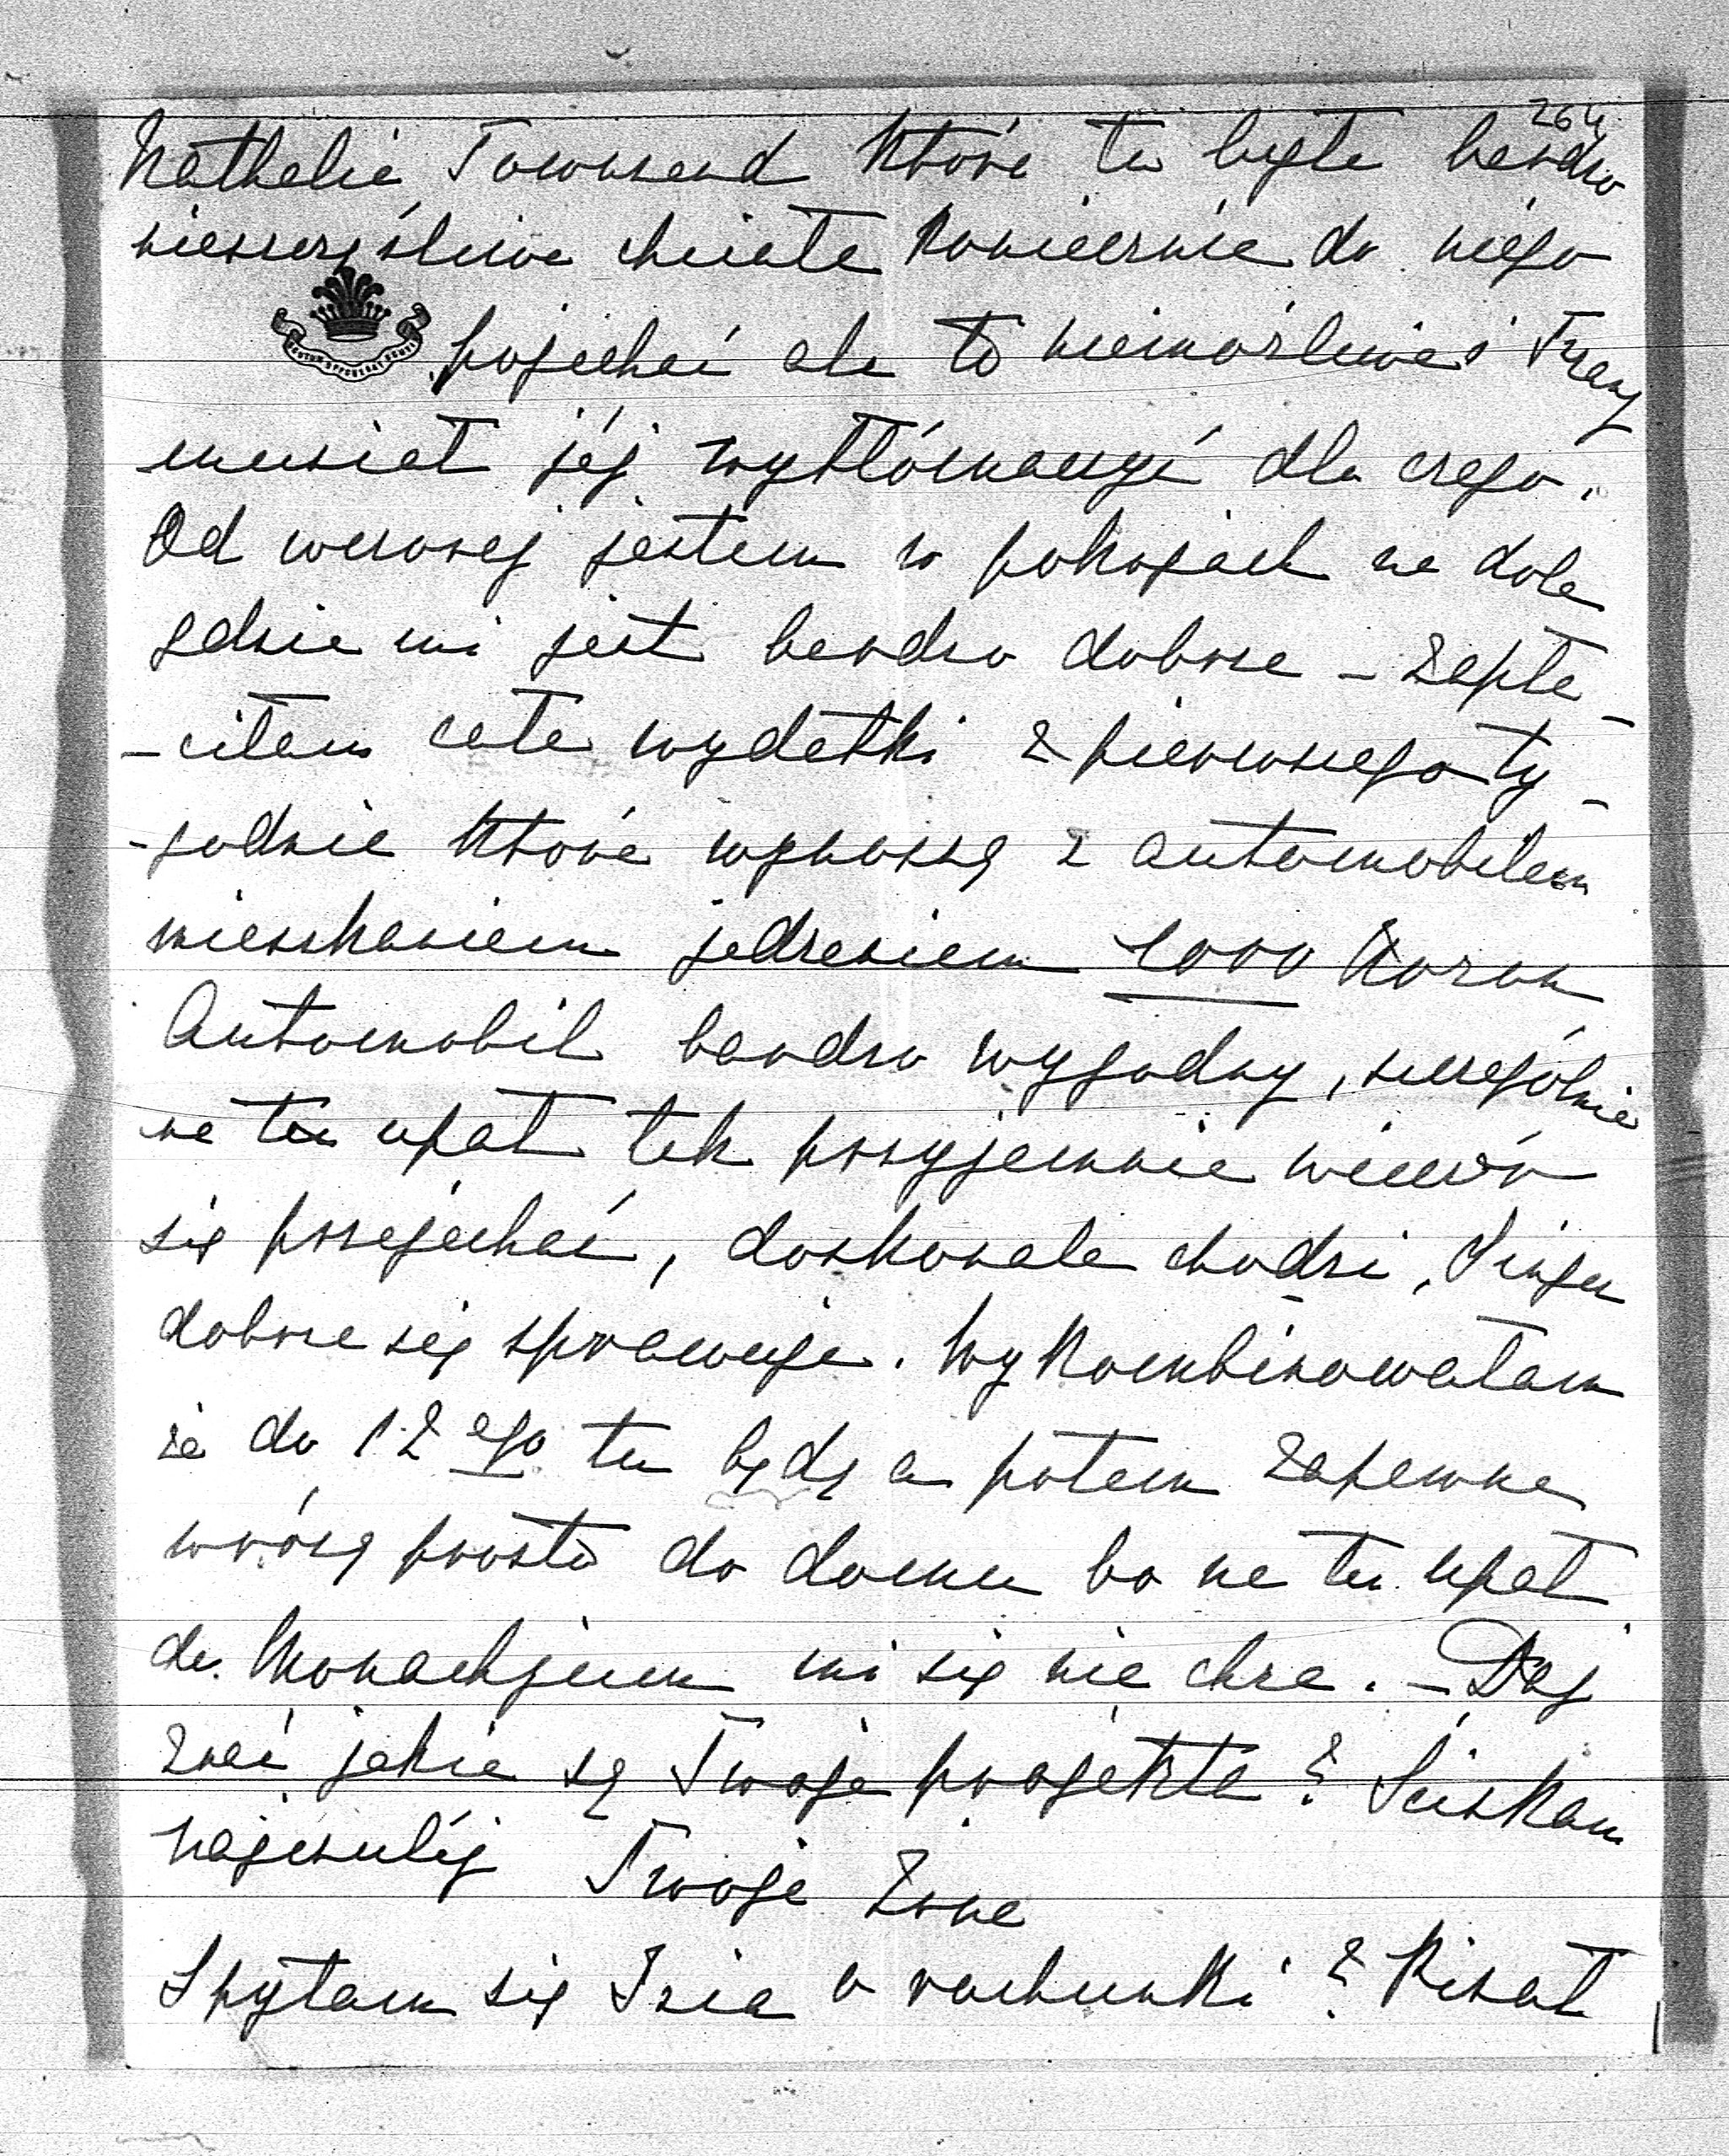 264
Nathalie Townsend która tu była bardzo
nieszczęśliwa chciała koniecznie do niego
pojechać ale to niemożliwe i Franz
musiał jéj wytłómaczyć dla czego.
Od wczoraj jestem w pokojach na dole
gdzie mi jest bardzo dobrze – Zapła-
-ciłam całe wydatki z pierwszego ty-
-godnia które wynoszą z automobilem
mieszkaniem jedzeniem 1000 Koron
Automobil bardzo wygodny, szczególnie
na ten upał tak przyjemnie wieczór
się przejechać, doskonale chodzi,
dobrze się sprawuje. Wykombinowałam
że do 12ego tu będę a potem zapewne
wrócę prosto do domu bo na ten upał
do Monachjum mi się nie chce. – Daj
znać jakie są Twoje projekta? Ściskam
najczuléj Twoja Żona
Spytam się Izia o rachunki? Pisał